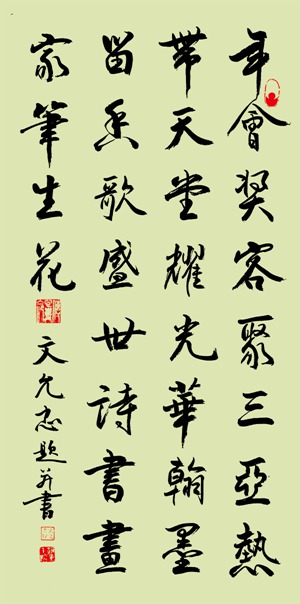 年會獎客聚三亞熱
帶天堂耀光華翰墨
留香歌盛世詩書畫
家筆生花
文允忠題并書